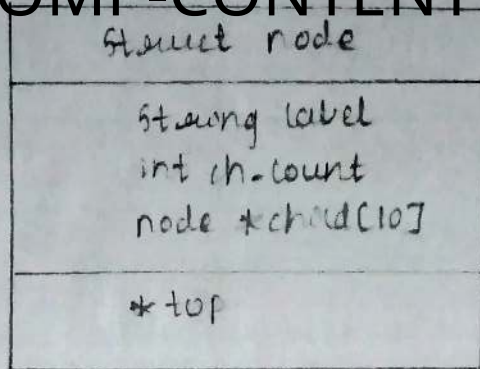 OMP-CONTENT
struct node
string label
int ch-count
node *child[10]
*top